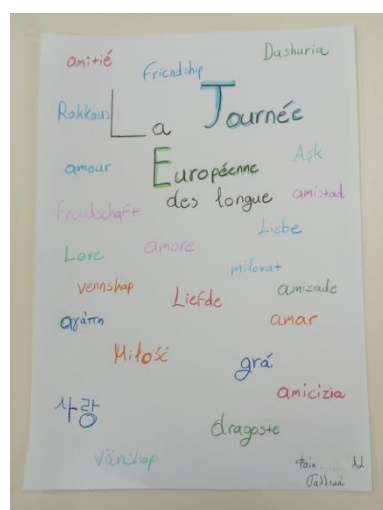 amitié
Friendship
Dashuria
Rakkaus
La Journée
amour
Européenne
Aşk
des longue
amistad
Freundschaft
Liebe
Love
amore
milovat
vennshap
Liefde
amizade
αγάπη
amar
Miłość
grá
amicizia
사랑
dragoste
vänshap